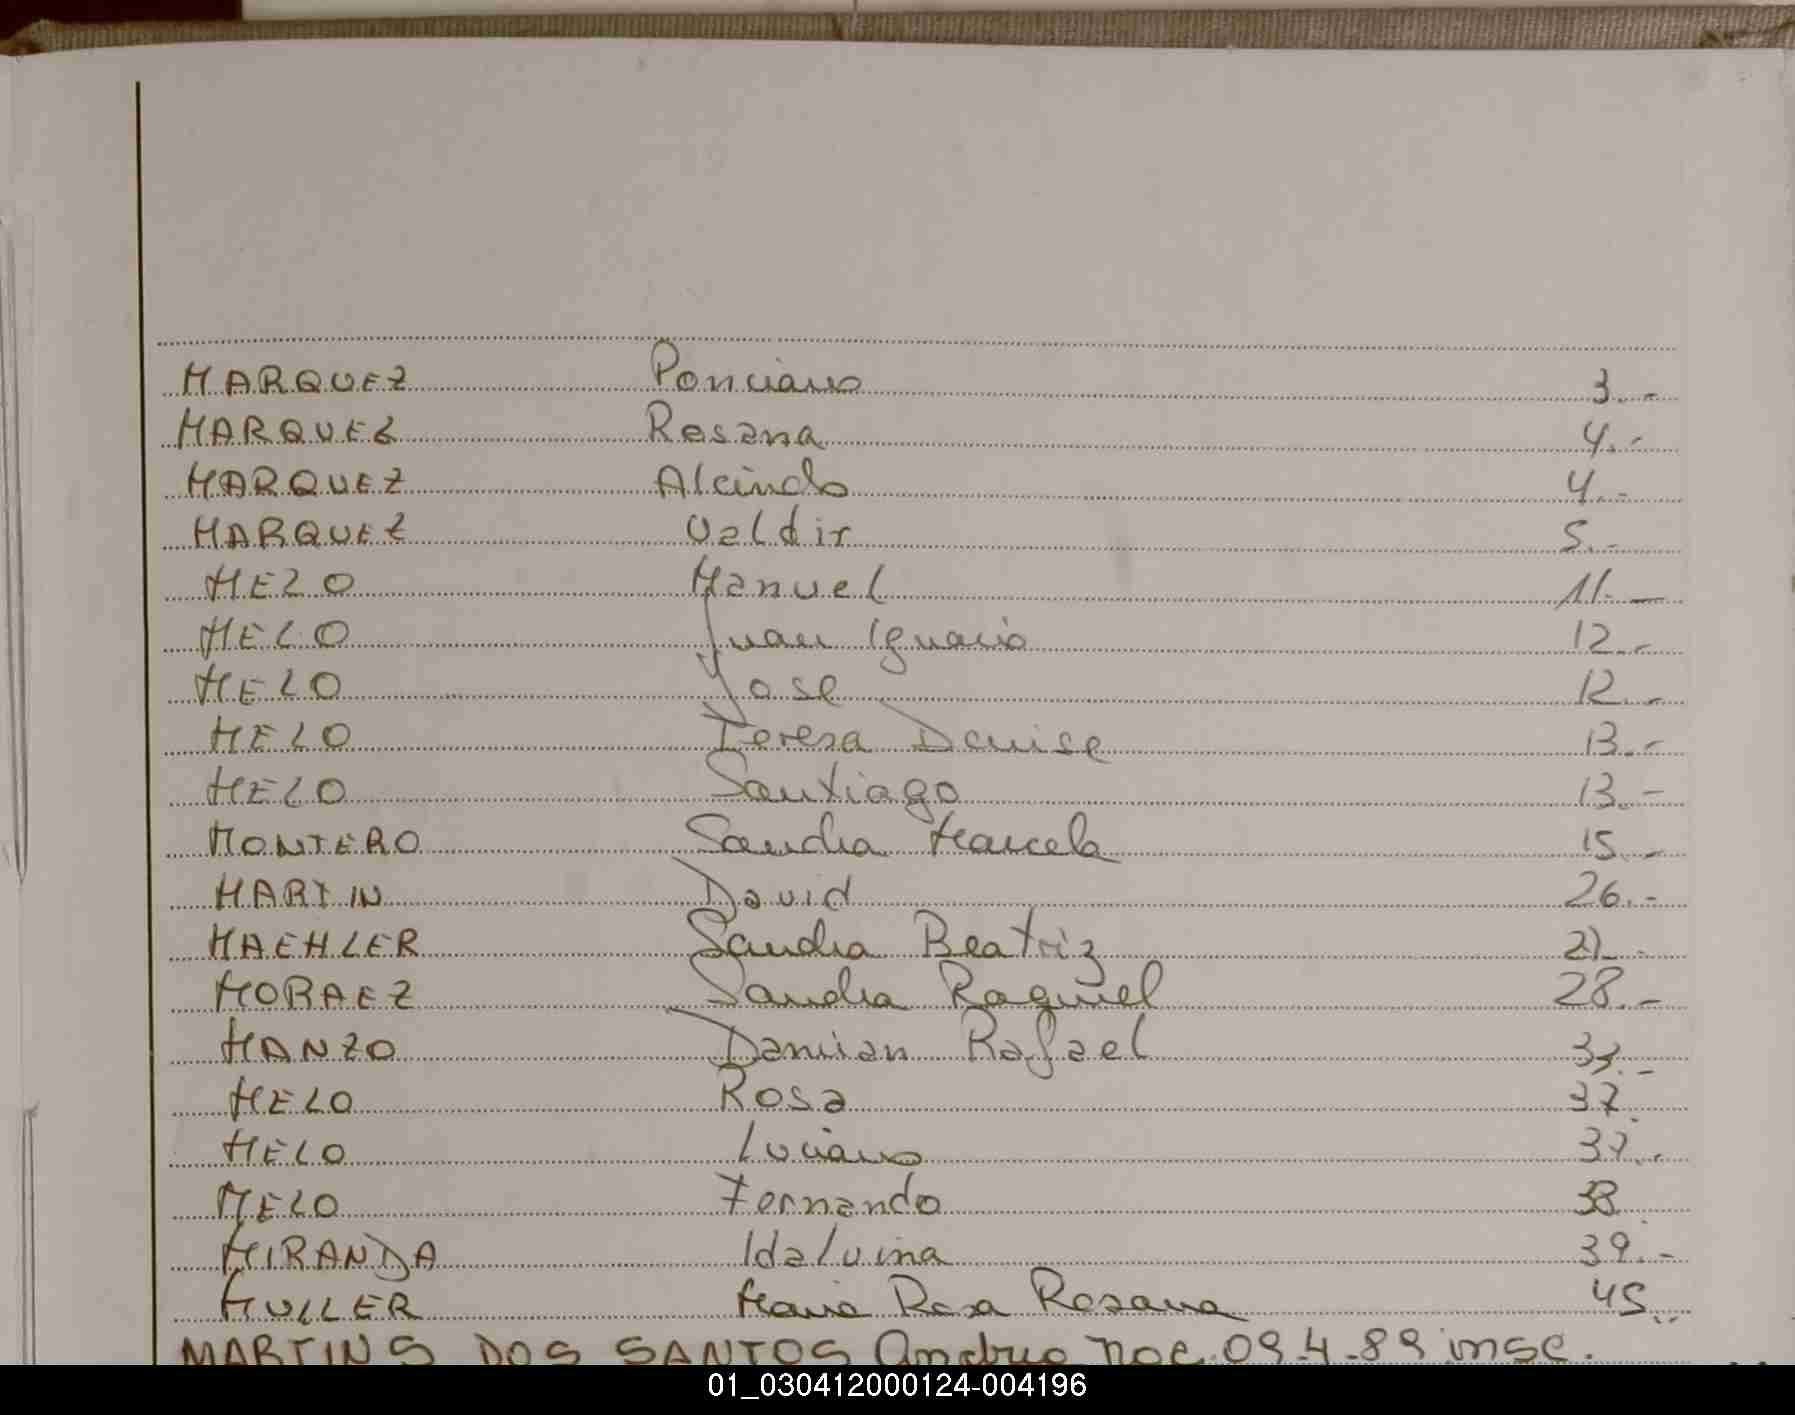 MARQUEZ Ponciano 3.-
MARQUEZ Rosana 4.-
MARQUEZ Alcindo 4.-
MARQUEZ Valdir 5.-
MELO Manuel 11.-
MELO Juan Ignacio 12.-
MELO Jose 12.-
MELO Teresa Denise 13.-
MELO Santiago 13.-
MONTERO Sandra Marcela 15.-
MARTIN David 26.-
MAEHLER Sandra Beatriz
MORAEZ Sandra Raquel 28.-
MANZO Damian Rafael 33.-
MELO Rosa 37.
MELO Luciano 37.-
MELO Fernando 38
MIRANDA Idalvina 39.-
MULLER Maria Rosa Rosana 45.-
MARTINS DOS SANTOS noc. 09-4-89 insc.
01_030412000124-004196